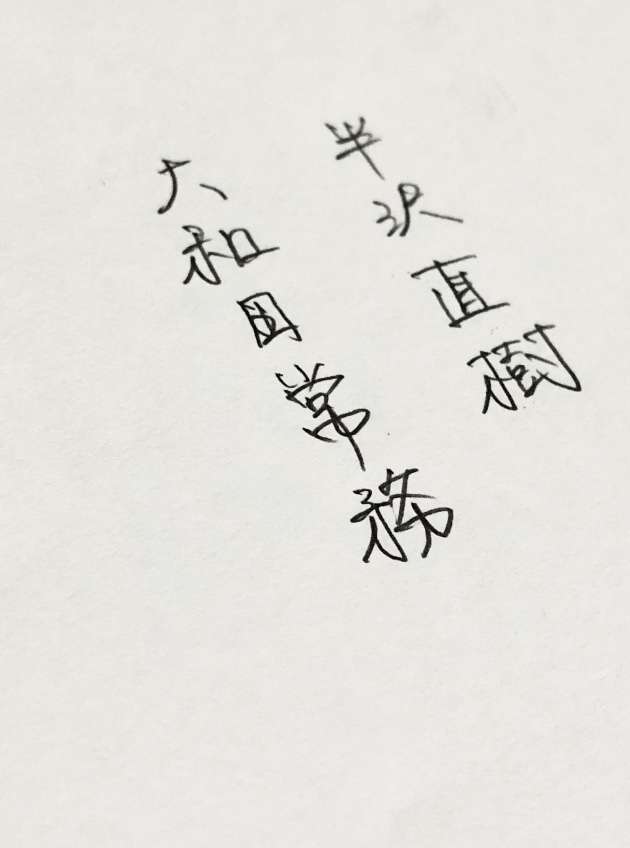 半沢直樹
大和田常務